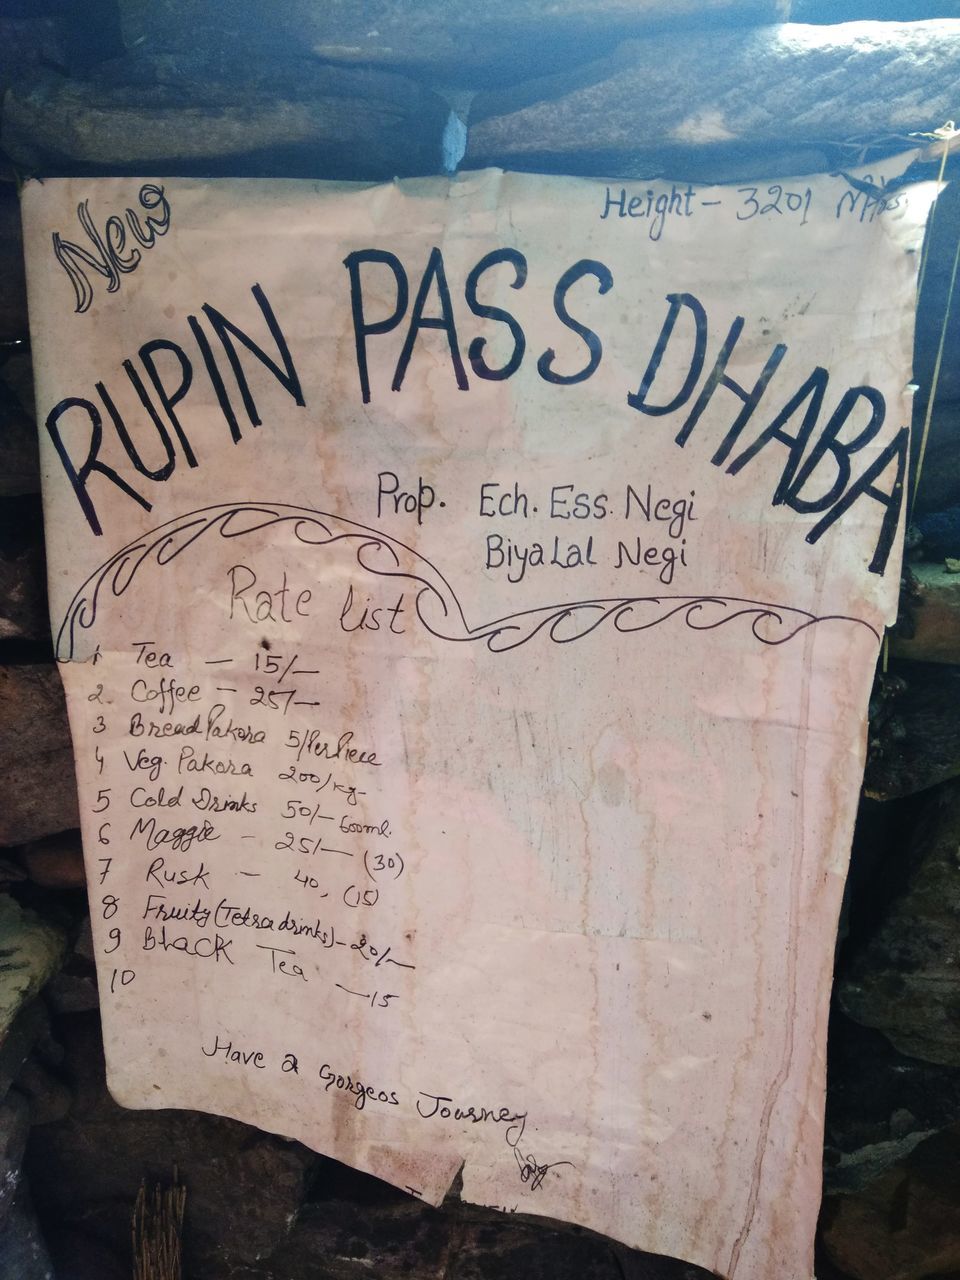 New
Height - 3201 Mtrs.
RUPIN PASS DHABA
Prop. Ech. Ess. Negi
Biya Lal Negi
Rate list
1 Tea — 15/—
2. Coffee — 25/—
3 Bread Pakora 5/Per Piece
4 Veg. Pakora 200/kg-
5 Cold Drinks 50/— 600ml.
6 Maggie — 25/— (30)
7 Rusk — 40, (15)
8 Fruity (Tetra drinks) - 20/—
9 Black Tea — 15
10
Have a Gorgeos Journey